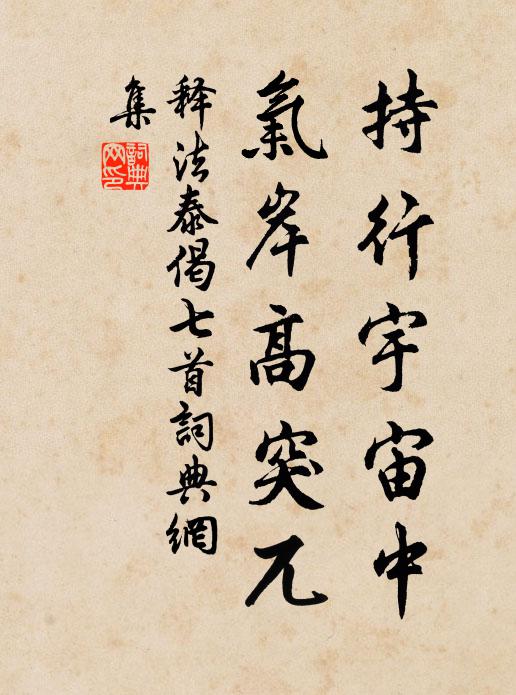 持行宇宙中
氣岸高突兀
释法泰偈七首詞典網
集
詞典
网印